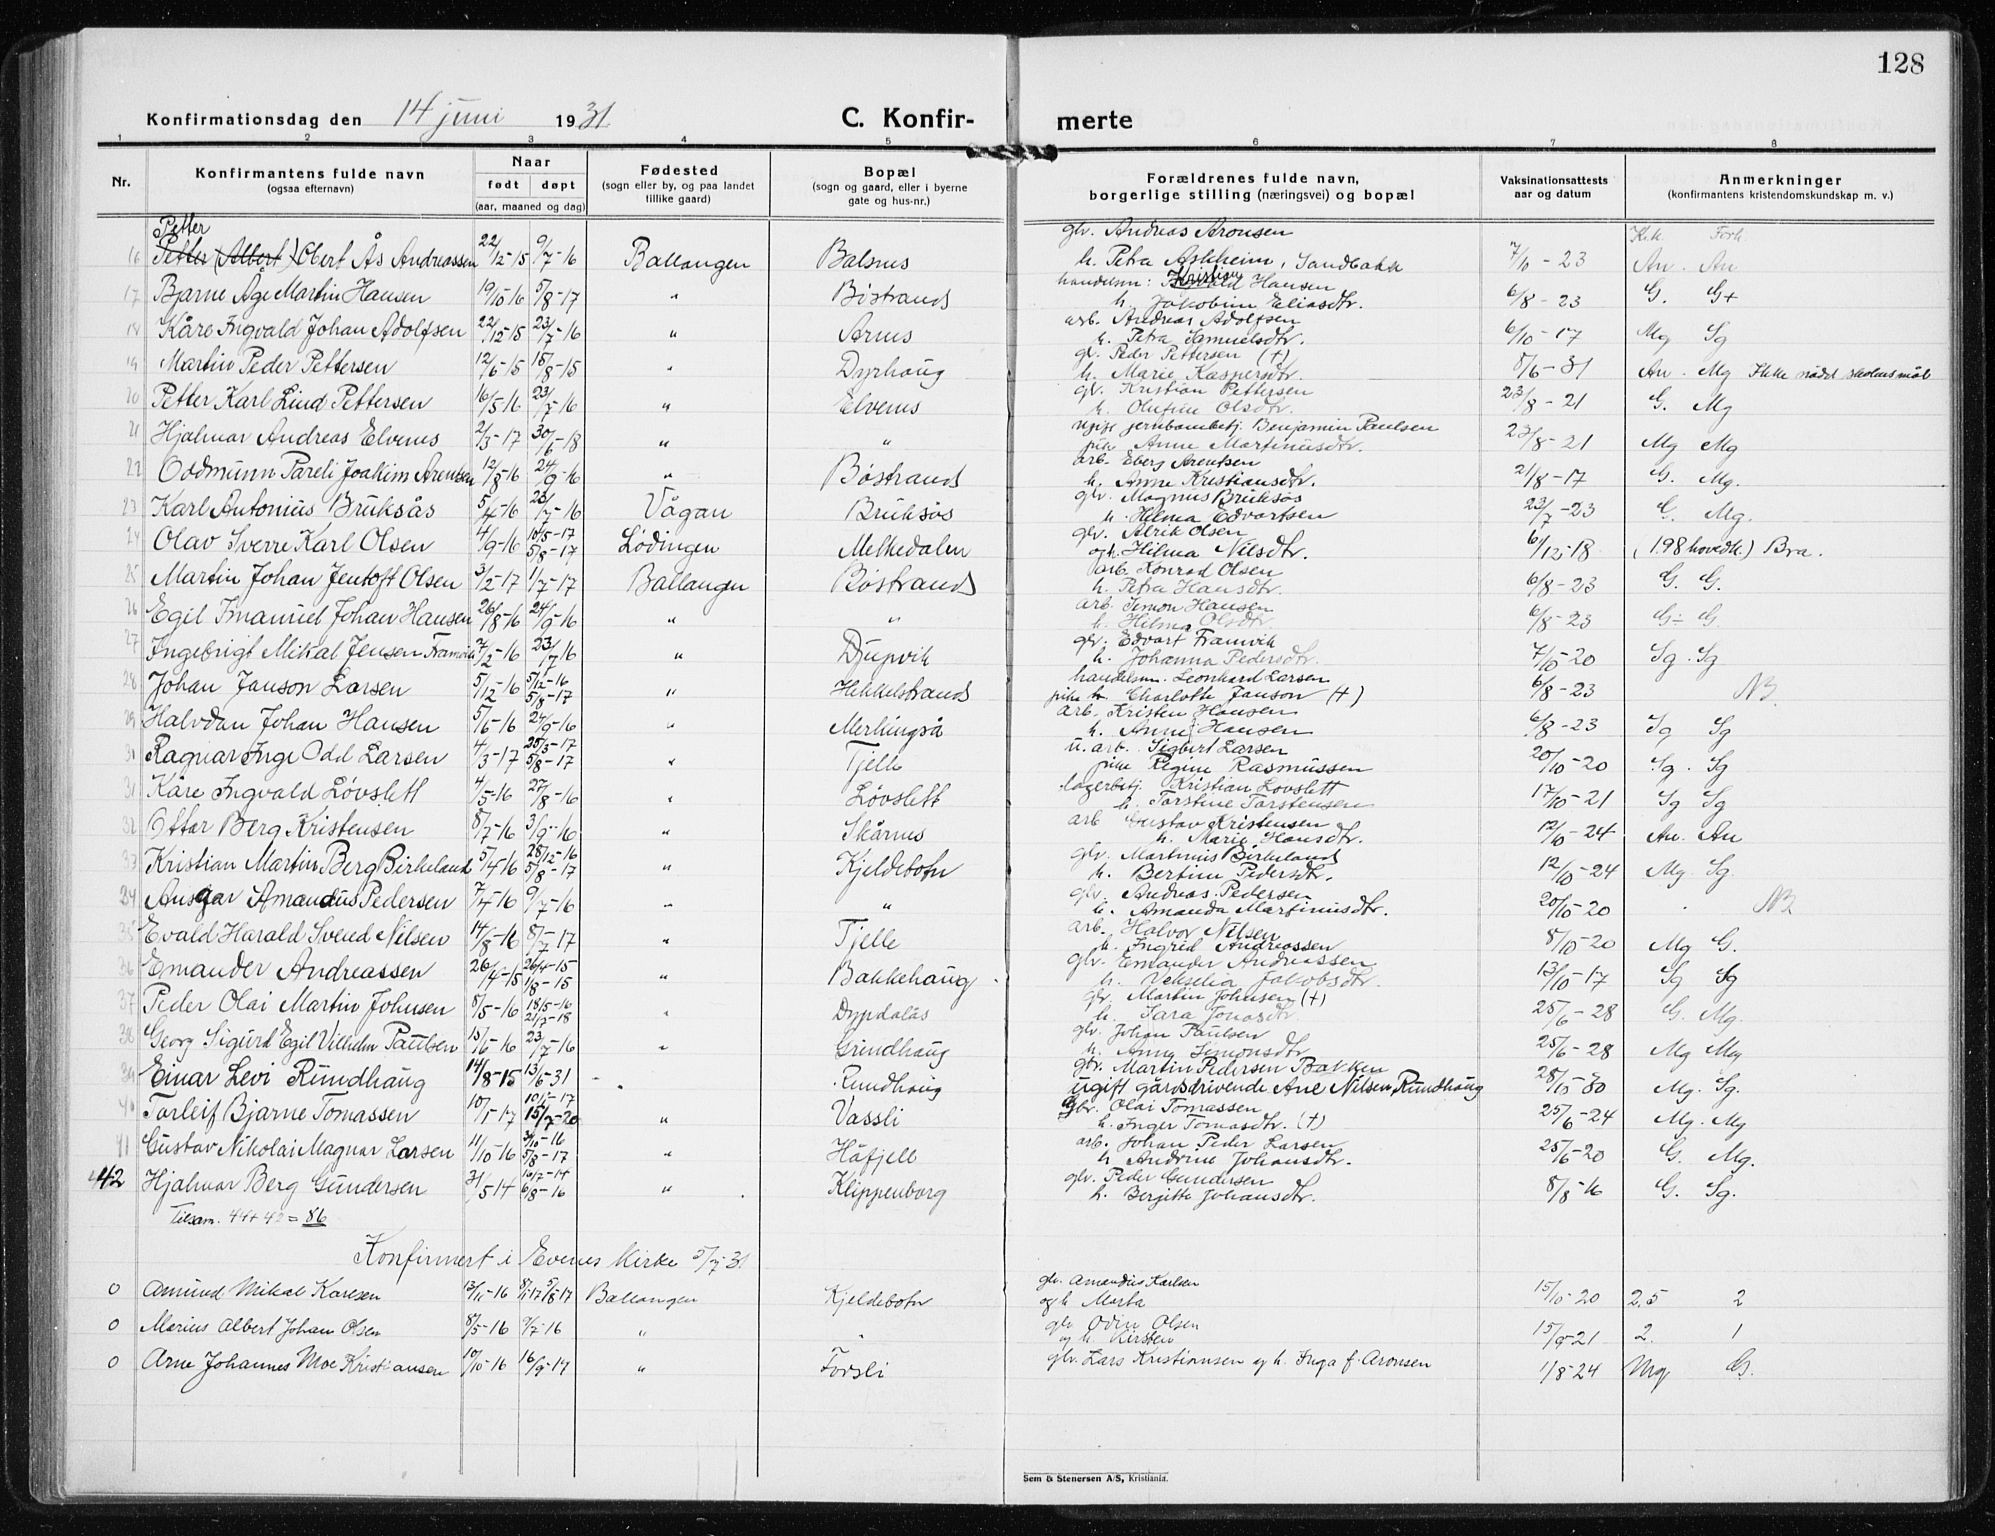 128
Konfirmationsdag den 14 juni 1931 C. Konfir- merte
1 2 3 4 5 6 7 8
Nr. Konfirmantens fulde navn (ogsaa efternavn) Naar født døpt (aar, maaned og dag) Fødested (sogn eller by, og paa landet tillike gaard) Bopæl (sogn og gaard, eller i byerne gate og hus-nr.) Forældrenes fulde navn, borgerlige stilling (næringsvei) og bopæl Vaksinationsattests aar og datum Anmerkninger (konfirmantens kristendomskundskap m. v.)
Petter gbr. Andreas Aronsen
16 Petter (Albert) Obert Ås Andreassen 22/12-15 9/7-16 Ballangen Balsnes h. Petra Askheim, Sandbakk 7/10-23 An. An
17 Bjarne Åge Martin Hansen 19/10-16 5/8-17 " Bøstrand handelsm: Kristian Hansen
h. Jakobine Eliasdtr. 6/8-23 G. G+
18 Kåre Ingvald Johan Adolfsen 22/12-15 23/7-16 " Arnes arb. Andreas Adolfsen
h. Petra Samuelsdtr. 6/10-17 Mg Sg
19 Martin Peder Pettersen 12/6-15 15/8-15 " Dyrhaug gb. Peder Pettersen (†)
h. Marie Kaspersdtr. 5/6-31 An. Mg Ikke nådd skolens mål
20 Petter Karl Lind Pettersen 16/5-16 23/7-16 " Elvenes gbr. Kristian Pettersen
h. Olufine Olsdtr. 23/8-21 G. Mg
21 Hjalmar Andreas Elvenes 2/3-17 30/6-18 " " ugift jernbanebetj. Benjamin Paulsen
pike Anne Martinusdtr. 23/8-21 Mg Mg
22 Oddmunn Pareli Joakim Arentsen 12/8-16 24/9-16 " Bøstrand arb. Eberg Arentsen
h. Anne Kristiansdtr. 21/8-17 G. Mg.
23 Karl Antonius Bruksås 5/4-16 23/7-16 Vågan Bruksås gbr. Magnus Bruksås
h. Hilma Edvartsen 23/7-23 G. Mg.
24 Olav Sverre Karl Olsen 4/9-16 10/5-17 5/8-17 Lødingen Melkedalen gbr. Alrik Olsen
og h. Hilma Nilsdtr. 6/12-18 (198 hovedk.) Bra.
25 Martin Johan Jentoft Olsen 3/2-17 1/7-17 Ballangen Bøstrand arb. Konrad Olsen
h. Petra Hansdtr. 6/8-23 G. G.
26 Egil Emanuel Johan Hansen 26/8-16 24/9-16 " " arb. Simon Hansen
h. Hilma Olsdtr. 6/8-23 G÷ G
27 Ingebrigt Mikal Jensen Framvik 2/2-16 23/7-16 " Djupvik gbr. Edvart Framvik
h. Johanna Pedersdtr. 7/10-20 Sg. Sg
28 Johan Janson Larsen 5/12-16 5/12-16 5/8-17 " Hekkelstrand handelsm. Leonhard Larsen
pike h. Charlotte Janson (†) 6/8-23 NB.
29 Halvdan Johan Hansen 5/6-16 24/9-16 " Merkingså arb. Kristen Hansen
h. Anne Hansen 6/8-23 Sg Sg
30 Ragnar Inge Odd Larsen 4/3-17 25/3-17 5/8-17 " Tjelle u. arb. Sigbert Larsen
pike Regine Rasmussen 20/10-20 Sg. Sg
31 Kåre Ingvald Løvslett 4/5-16 27/8-16 " Løvslett lagerbetj. Kristian Løvslett
h. Torstine Torstensen 17/10-21 Sg Sg
32 Ottar Berg Kristensen 8/7-16 3/9-16 " Skårnes arb Gustav Kristensen
h. Marie Hansdtr. 12/10-24 An. An
33 Kristian Martin Berg Birkeland 5/4-16 28/12-16 5/8-17 " Kjeldebotn gbr. Martinus Birkeland
h. Bertine Pedersdtr. 12/10-24 Mg. Sg.
34 Ansgar Amandus Pedersen 7/4-16 9/7-16 " " gbr. Andreas Pedersen
h. Amanda Martinusdtr. 20/10-20 NB
35 Evald Harald Svend Nilsen 14/8-16 8/7-17 " Tjelle arb. Halvor Nilsen
h. Ingrid Andreassen 8/10-20 Mg G.
36 Emander Andreassen 26/4-15 26/4-15 1/8-15 " Bakkehaug gbr. Emander Andreassen
h. Jakobsdtr. 13/10-17 Sg Sg
37 Peder Olai Martin Johnsen 8/5-16 18/5-16 21/7-18 " Dypdalås gbr. Martin Johnsen (†)
h. Sara Jonasdtr. 25/6-28 G. Mg.
38 Georg Sigurd Egil Vilhelm Paulsen 15/6-16 23/7-16 " Grindhaug gbr. Johan Paulsen
h. Anna Simonsdtr. 25/6-28 Mg Mg
39 Einar Levi Rundhaug 14/8-15 13/6-31 " Rundhaug gbr. Martin Pedersen Bakken
ugift gårdsdrivende Ane Nilsen, Rundhaug 28/10-30 Mg. Sg.
40 Torleif Bjarne Tomassen 10/1-17 10/5-17 15/7-20 " Vassli gbr. Olai Tomassen
h. Inger Tomasdtr. (†) 25/6-24 Mg. Mg
41 Gustav Nikolai Magnar Larsen 11/10-16 3/10-16 5/8-17 " Håfjell arb. Johan Peder Larsen
h Andrine Johansdtr. 25/6-20 G. Mg.
42 Hjalmar Berg Gundersen 31/5 14 10/7-14 6/8-16 " Klippenborg gbr. Peder Gundersen
h. Berjitte Johansdtr. 8/8-16 G. Sg.
Tilsam. 44+42=86
Konfirmert i Evenes kirke 5/7-31
0 Amund Mikal Karlsen 13/11-16 8/1 17 5/8 17 Ballangen Kjeldebotn gbr. Amandus Karlsen
og h Marta 15/10-20 2,5 2
0 Marius Albert Johan Olsen 8/5-16 9/7-16 " " gbr Odin Olsen
og h. Kirsten 15/9-21 2. 1
0 Arne Johannes Moe Kristiansen 10/10-16 16/9-17 " Forsli gbr. Lars Kristiansen og h. Inga f. Aronsen 1/8-24 Mg G.
Sem & Stenersen A/S, Kristiania.